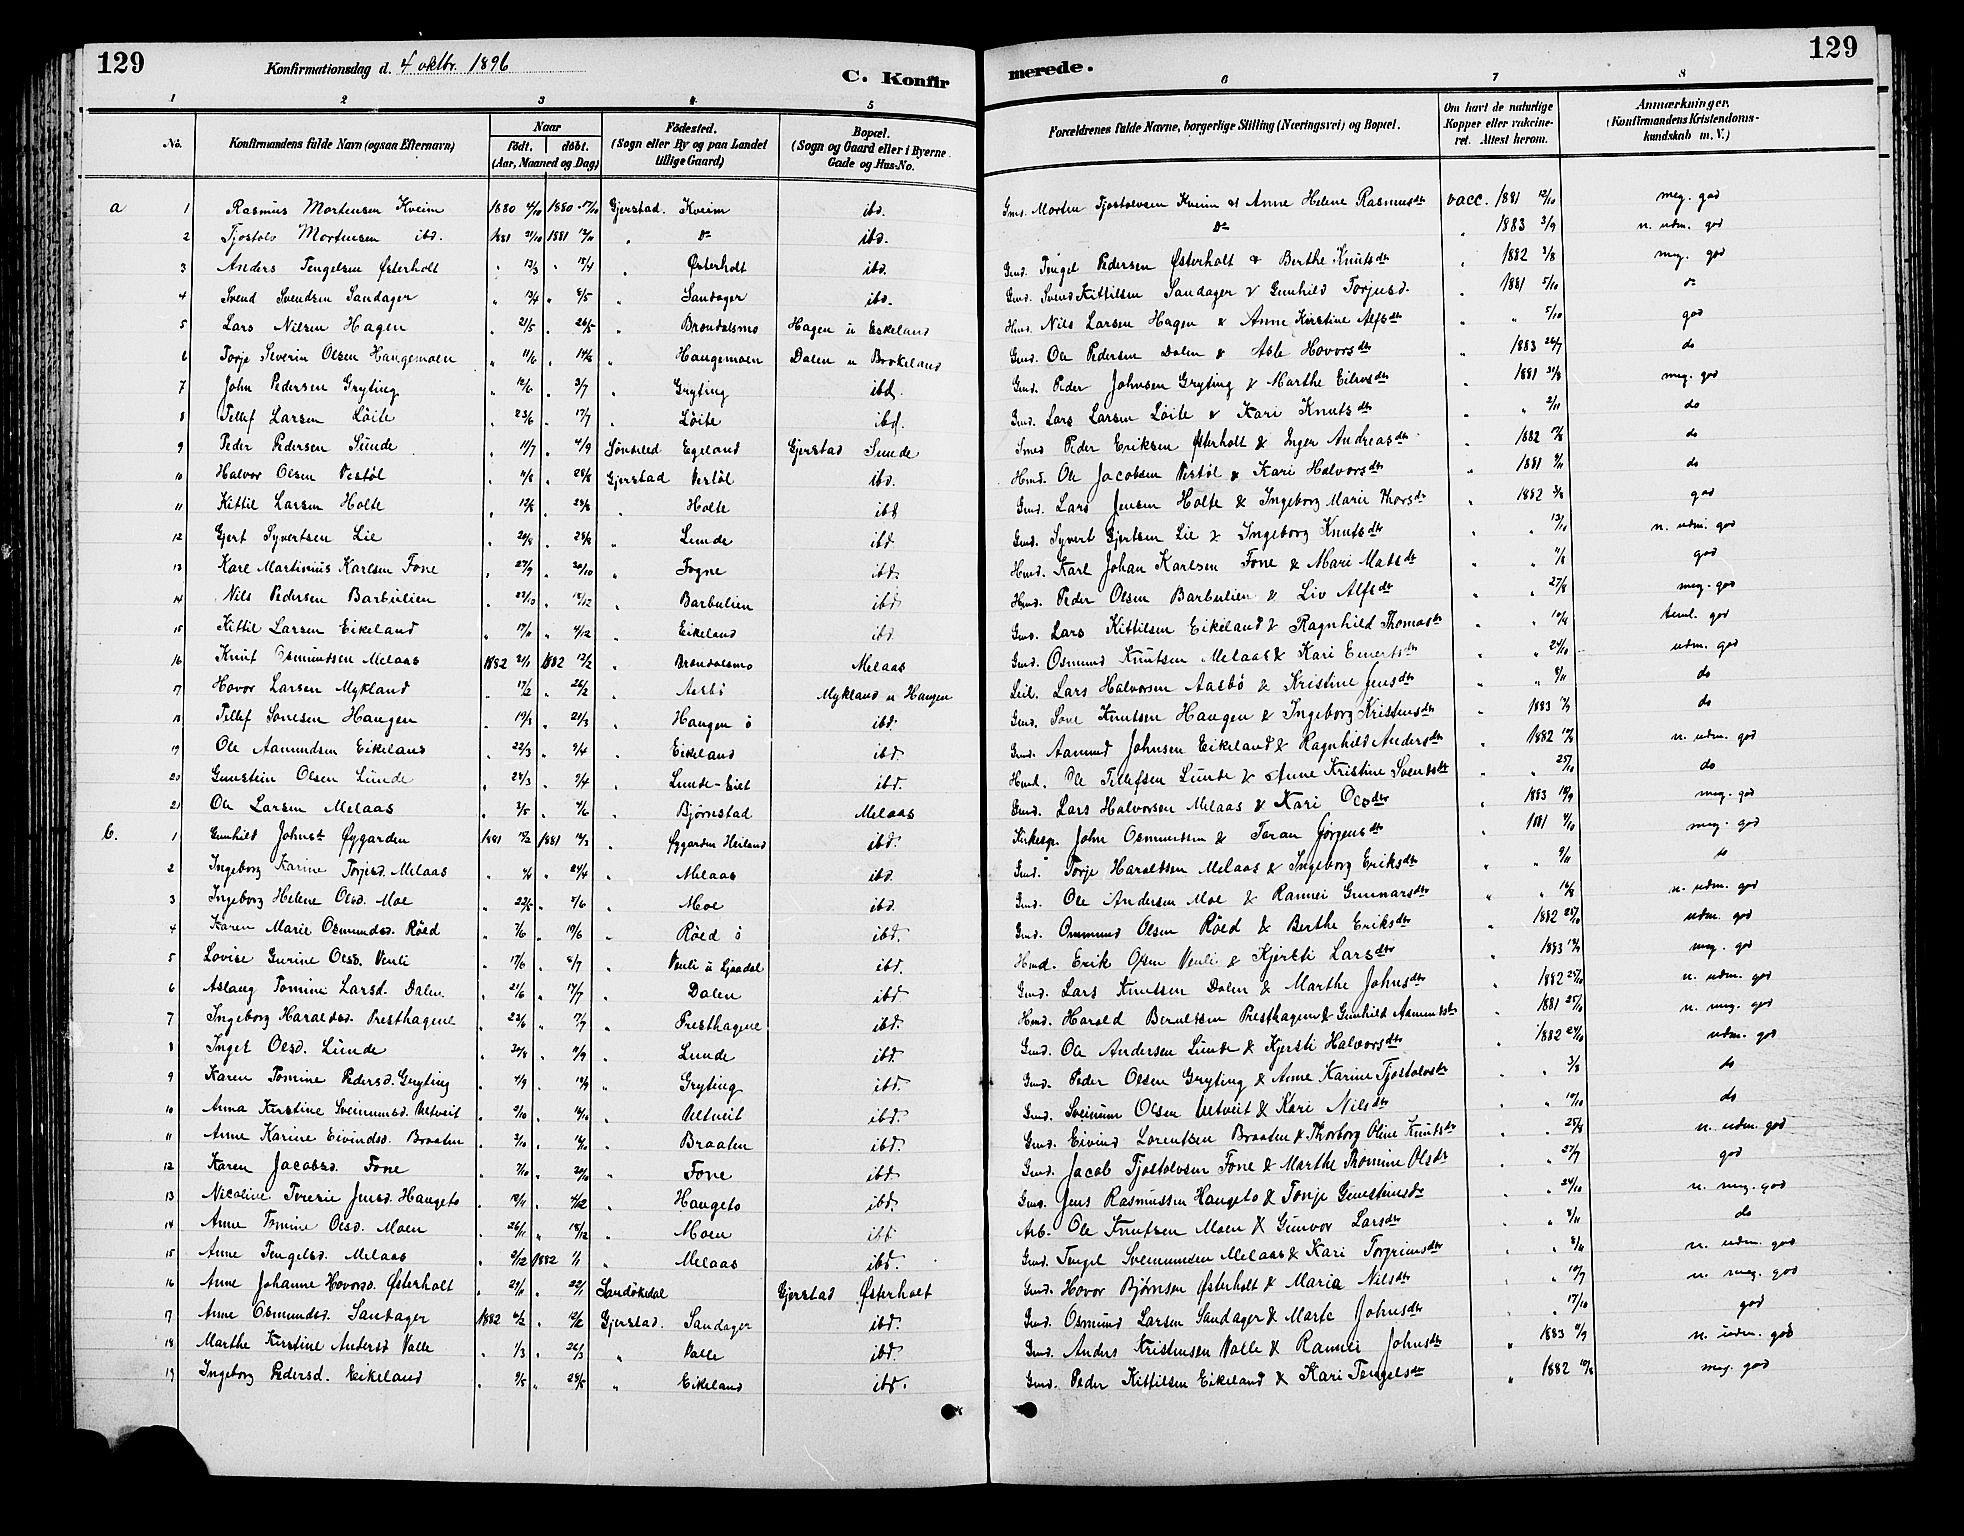 129
Konfirmationsdag d. 4 oktbr. 1896
C. Konfir
merede.
129
1 2 3 4 5 6 7 8
No. Konfirmandens fulde Navn (ogsaa Efternavn) Naar født. døbt. (Aar, Maaned og Dag) Fødested. (Sogn eller By og paa Landet tillige Gaard) Bopæl. (Sogn og Gaard eller i Byerne Gade og Hus-No. Forældrenes fulde Navne, borgerlige Stilling (Næringsvei) og Bopæl. Om havt de naturlige Kopper eller vakcineret. Attest herom. Anmærkninger. (Konfirmandens Kristendomskundskab m. V.)
a 1 Rasmus Mortensen Kveim 1880 4/10 1880 17/10 Gjerstad. Kveim ibd. Gmd. Morten Tjostolvsen Kveim & Anne Helene Rasmusdtr vacc. 1881 12/10 meg. god
2 Tjostolv Mortensen ibd. 1881 21/10 1881 13/11 " do ibd. do " 1883 3/9 n. udm. god
3 Anders Tengelsen Østerholt " 13/3 " 18/4 " Østerholt ibd. Gmd. Tengel Pedersen Østerholt & Berthe Knutsdtr " 1882 3/8 meg. god
4 Svend Svendsen Sandager " 13/4 " 8/5 " Sandager ibd. Gmd. Svend Kittilsen Sandager & Gunhild Torjusd. " 1881 5/10 do
5 Lars Nilsen Hagen " 21/5 " 26/5 " Brøndalsmo Hagen u Eskeland Hmd. Nils Larsen Hagen & Anne Kirstine Alfsdtr " " 5/10 god
6 Torje Severin Olsen Haugemoen " 11/6 " 14/6 " Haugemoen Dalen u Brokeland Gmd. Ole Pedersen Dalen & Aste Hovorsdtr " 1883 26/7 do
7 John Pedersen Gryting " 12/6 " 3/7 " Gryting ibd. Gmd. Peder Johnsen Gryting & Marthe Eilevsdtr " 1881 31/8 meg. god
8 Tellef Larsen Løite " 23/6 " 17/7 " Løite ibd. Gmd. Lars Larsen Løite & Kari Knutsdtr " " 2/11 do
9 Peder Pedersen Sunde " 11/7 " 4/9 Søndeled Egeland Gjerstad Sunde Smed Peder Eriksen Østerholt & Inger Andreasdtr " 1882 do
10 Halvor Olsen Vestøl " " 28/8 Gjerstad Vestøl ibd. Hmd. Ole Jacobsen Vestøl & Kari Halvorsdtr " 1881 9/11 do
11 Kittil Larsen Holte " 12/8 " 28/8 " Holte ibd Gmd. Lars Jensen Holte & Ingeborg Marie Thorsdtr " 1882 3/8 god
12 Gjert Syvertsen Lie " 20/8 " 28/8 " Lunde ibd Gmd. Syvert Gjertsen Lie & Ingeborg Knutsdtr " " 13/10 n. udm. god
13 Karl Martinius Karlsen Fone " 27/9 " 20/10 " Fogne ibd. Hmd. Karl Johan Karlsen Fone & Mari Matsdtr " " god
14 Nils Pedersen Barbulien " 23/10 " 18/12 " Barbulien ibd Hmd. Peder Olsen Barbulien & Liv Alfsdtr " " 27/8 meg. god
15 Kittil Larsen Eikeland " 17/11 " 4/12 " Eikeland ibd Gmd. Lars Kittilsen Eikeland & Ragnhild Thomasdtr " " teml. god
16 Knut Osmundsen Melaas 1882 1882 12/2 " Brøndalsmo Melaas Gmd. Osmund Knutsen Melaas & Kari Evertsdtr " " 24/10 udm. god
17 Hovor Larsen Mykland " 17/2 " 26/2 " Aasbø Mykland u Haugen Leil. Lars Halvorsen Aasbø & Kristine Jensdtr " " 8/11 do
18 Tellef Sonesen Haugen " 19/3 " 21/3 " Haugen ö ibd. Gmd. Sone Knutsen Haugen & Ingeborg Kristensdtr " 1883 do
19 Ole Aamundsen Eikeland " 22/3 " 9/4 " Eikeland ibd. Gmd. Aamund Johnsen Eikeland & Ragnhild Andersdtr " 1882 n. udm. god
20 Gunstein Olsen Lunde " 24/3 " 9/4 " Lunde-Eiet ibd. Hmd. Ole Tellefsen Lunde & Anne Kristine Svendsdtr " " 25/10 do
21 Ole Larsen Melaas " 3/5 " " Bjørnstad Melaas Gmd. Lars Halvorsen Melaas & Kari Olsdtr " 1883 18/9 meg. god
b. 1 Gunhild Johnsdt Øygarden 1881 1881 " Øygarden Heiland ibd. Kirkesgr. John Osmundsen & Taran Jørgensdtr " 1881 9/10 meg. god
2 Ingeborg Karine Torjesd. Melaas " " 24/4 " Melaas ibd. Gmd. Torje Haraldsen Melaas & Ingeborg Eriksdtr " " 9/11 do
3 Ingeborg Helene Olsd. Moe " 22/5 " " Moe ibd. Gmd. Ole Andersen Moe & Rannei Gunnarsdtr " " 16/8 n. udm. god
4 Karen Marie Osmundsd. Røed " 7/6 " 19/6 " Røed ö ibd. Gmd. Osmund Olsen Røed & Berthe Eriksdtr " 1882 25/10 udm. god
5 Lovise Gurine Olsd. Venli " 17/6 " 8/7 " Venli u Ljaadal ibd. Hmd. Erik Olsen Venli & Kjersti Larsdtr " 1883 meg. god
6 Aslaug Tomine Larsd. Dalen " 21/6 " 17/7 " Dalen ibd Gmd. Lars Knutsen Dalen & Marthe Johnsdtr " 1882 25/10 n. udm. god
7 Ingeborg Haraldsd. Presthagene " 23/6 " 17/7 " Presthagene ibd. Hmd. Harald Berulsen Presthagene & Gunhild Aamundsdtr " 1881 25/10 n. meg. god
8 Inget Olsd. Lunde " 20/8 " 11/9 " Lunde ibd Gmd. Ole Andersen Lunde & Kjersti Halvorsdtr " 1882 24/10 udm. god
9 Karen Tomine Pedersd. Gryting " 4/9 " 18/9 " Gryting ibd. Gmd. Peder Olsen Gryting & Anne Karine Tjostolvsdtr " " 3/8 do
10 Anna Kirstine Sveinumsd. Vetveit " 2/10 " 16/10 " Vetveit ibd. Gmd. Sveinum Olsen Vetveit & Kari Nilsdtr " " 10/10 do
11 Anne Karine Eivindsd. Braaten " 3/10 " " Braaten ibd. Gmd. Eivind Lorentsen Braaten & Thorborg Oline Knutsdtr " " 25/8 n. udm. god
12 Karen Jacobsd. Fone " 7/10 " 20/10 " Fone ibd Gmd. Jacob Tjostolvsen Fone & Marthe Thomine Olsdtr " " 27/9 god
13 Nicoline Teresie Jensd. Haugeto " 18/11 " 4/12 " Haugeto ibd. Gmd. Jens Rasmussen Haugeto & Tonje Gunsteinsdtr " " 24/10 n. meg. god
14 Anne Tomine Olsd. Moen " 26/11 " 18/12 " Moen ibd Arb. Ole Knutsen Moen & Gunvor Larsdtr " " 8/11 do
15 Anne Tengelsd. Melaas " 2/12 1882 1/1 " Melaas ibd. Gmd. Tengel Sveinumsen Melaas & Kari Torgrimsdtr " " 8/11 n. udm. god
16 Anne Johanne Hovorsd. Østerholt " " 22/1 Sandøkedal Gjerstad Østerholt Gmd. Hovor Bjørnsen Østerholt & Maria Nilsdtr " " 10/7 n. meg. god
17 Anne Osmundsd. Sandager 1882 " 12/2 Gjerstad. Sandager ibd. Gmd. Osmund Larsen Sandager & Marte Johnsdtr " " 17/10 god
18 Marthe Kirstine Andersd Valle " 1/3 " 26/3 " Valle ibd. Gmd. Anders Kristensen Valle & Rannei Johnsdtr " 1883 11/9 n. udm. god
19 Ingeborg Pedersd. Eikeland " 9/5 " 28/5 " Eikeland ibd. Gmd. Peder Kittilsen Eikeland & Kari Tengelsdtr " 1882 10/8 meg. god